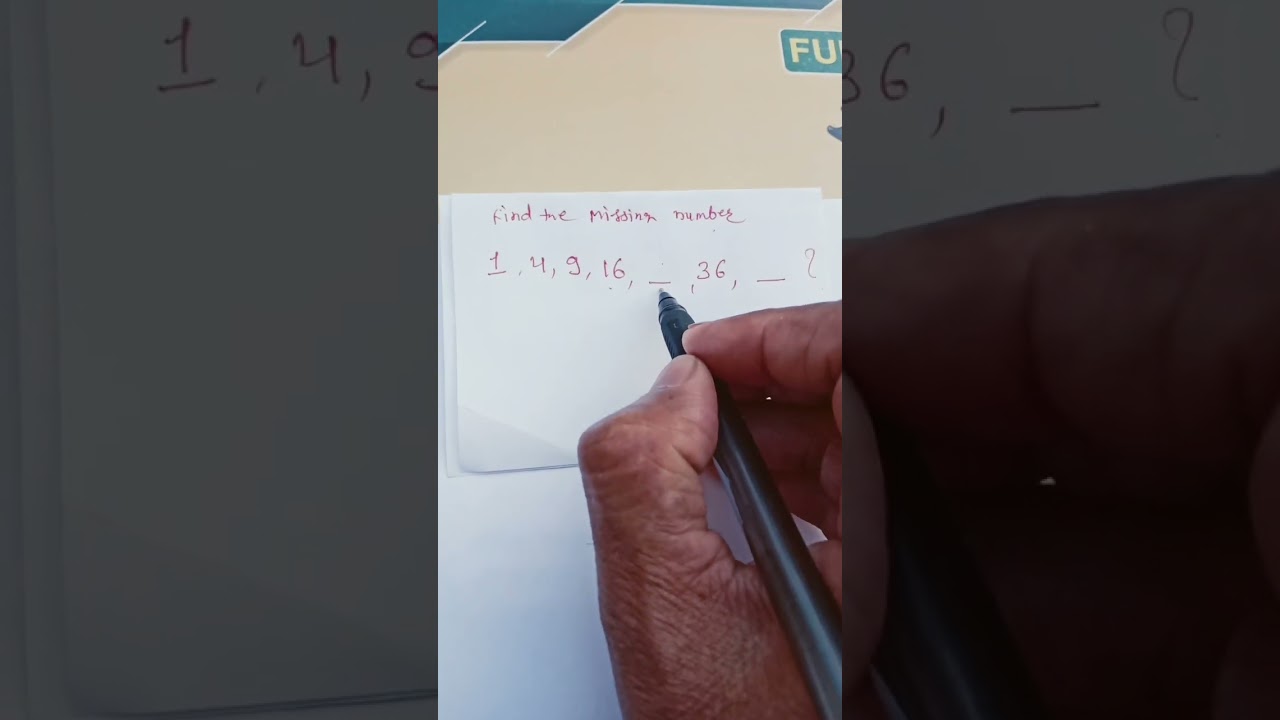 FU
Find the missing number
1, 4, 9, 16, _, 36, _ ?